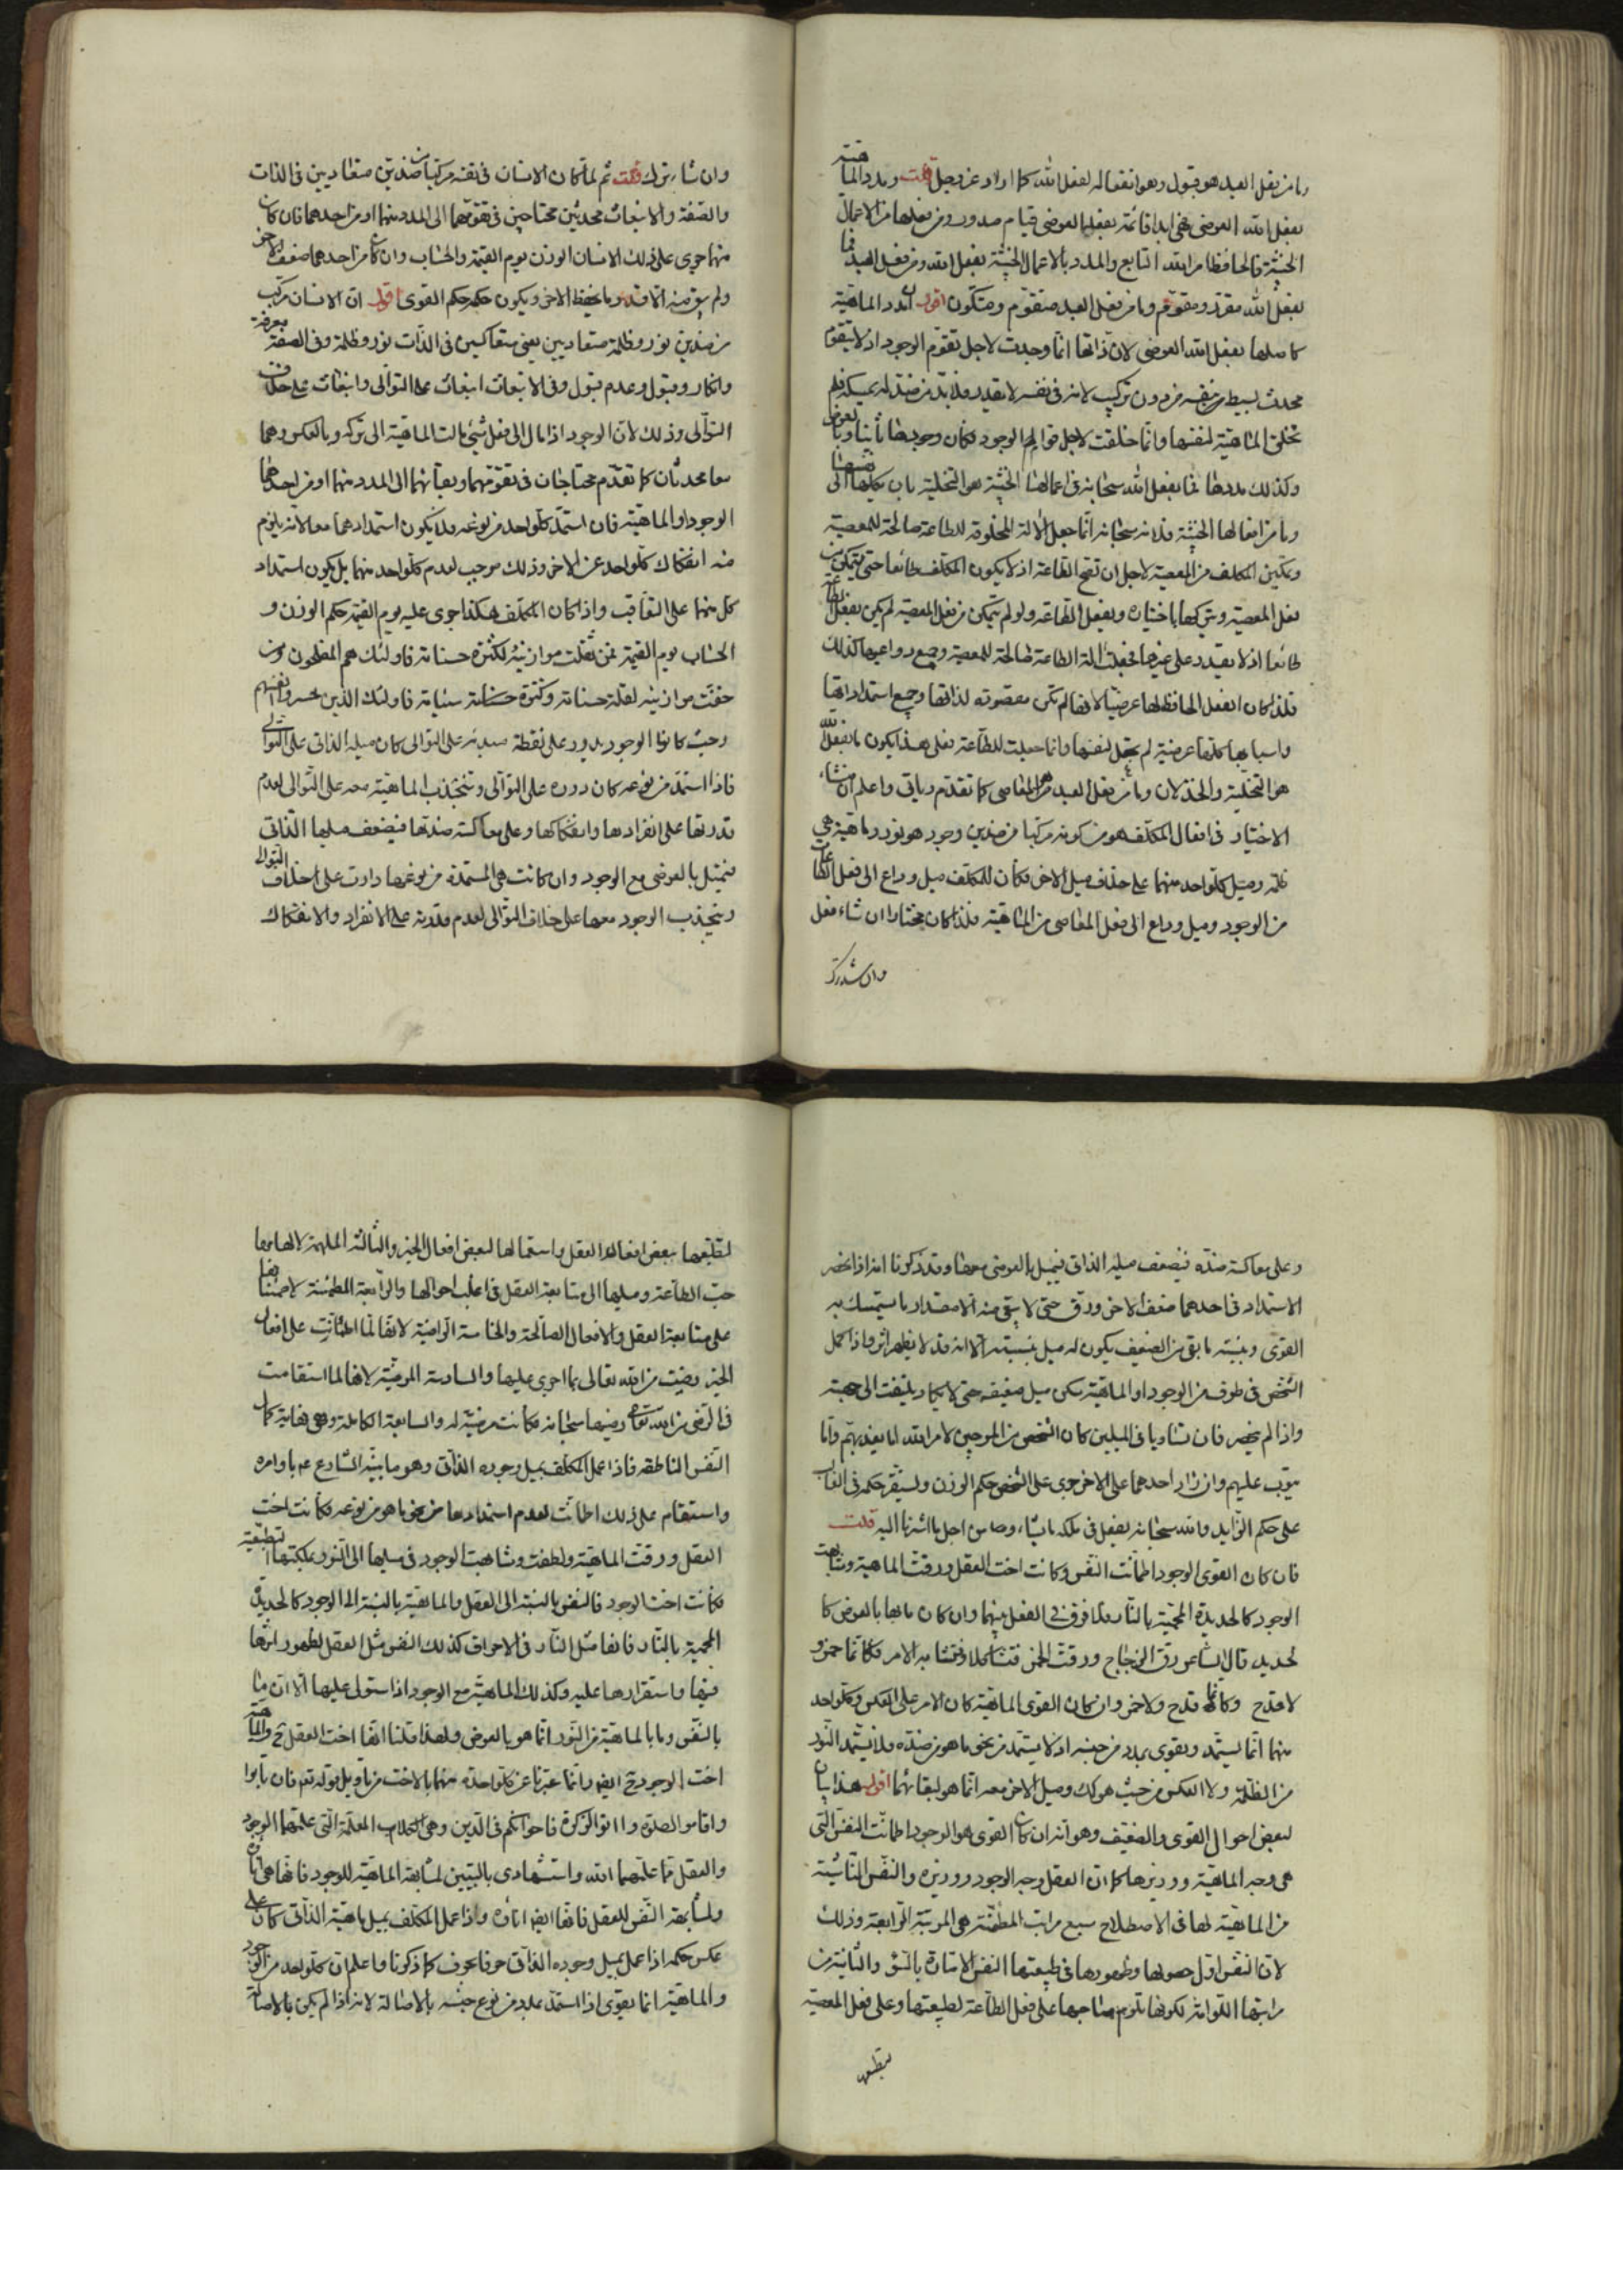 وما من فعل العبد هو قبول وهو انفعاله لفعل الله كما اراد عز وجل قلت ومدد الماهية
بفعل الله العرضى فهى ابدا قائمة بفعلها العرضى قيام صدور ومن فعلها من الاعمال
الخبيثة فالحافظ من الله التابع والمدد بالاعمال الخبيثة بفعل الله ومن فعل العبد فما
بفعل الله مقوّر ومقوّم وما من فعل العبد متقوّم ومتكون اقول ان مدد الماهية
كاصلها بفعل الله العرضى لان ذاتها انما وجدت لاجل تقوّم الوجود اذ لا يتقوم
محدث بسيط بنفسه من دون تركيب لانه فى نفسه لا يقدر فلابد من ضد له يمسكه فلم
تخلق الماهية لنفسها وانما خلقت لاجل قوام الوجود فكان وجودها ثانيا وبالعرض
وكذلك مددها فما بفعل الله سبحانه فى اعمالها الخبيثة هو التخلية بان يكلها الى نفسها
وما من افعالها الخبيثة فلانه سبحانه انما جعل الالة المخلوقة للطاعة صالحة للمعصية
وتمكين المكلف من المعصية لاجل ان تصح الطاعة اذ لا يكون المكلف طائعا حتى يتمكن من
فعل المعصية ويتركها باختياره ويفعل الطاعة ولو لم يتمكن من فعل المعصية لم يكن بفعل الطاعة
طائعا اذ لا يقدر على غيرها فجعلت الة الطاعة صالحة للمعصية وجميع دواعيها كذلك
فلذا كان الفعل الحافظ لها عرضيا لانها لم تكن مقصودة لذاتها وجميع استمداداتها
واسبابها كلها عرضية لم تجعل لنفسها وانما جعلت للطاعة فعلى هذا يكون ما بفعل الله
هو التخلية والخذلان وما من فعل العبد هو المعاصى كما تقدم وياتى واعلم ان منشاء
الاختيار فى افعال المكلف هو من كونه مركبا من ضدين وجود هو نور وماهية هى
ظلمة وميل كل واحد منهما على خلاف ميل الاخر فكان للمكلف ميل وداع الى فعل الطاعات
من الوجود وميل وداع الى فعل المعاصى من الماهية فلذا كان مختارا ان شاء فعل
وان شاء ترك
وان شاء ترك قلت ثم لما كان الانسان فى نفسه مركبا من ضدين متعاديين فى الذات
والصفة والانبعاث محدثين محتاجين فى تقوّمهما الى المدد منهما او من احدهما فان كان
منهما جرى على ذلك الانسان الوزن يوم القيمة والحساب وان كان من احدهما ضعف الاخر
ولم يبق منه الا قدر ما يحفظ الاخر ويكون حكمه حكم القوى اقول ان الانسان مركب
من ضدين نور وظلمة متعاديين يعنى متعاكسين فى الذات نور وظلمة وفى الصفة معرفة
وانكار وقبول وعدم قبول وفى الانبعاث انبعاث على التوالى وانبعاث على خلاف
التوالى وذلك لان الوجود اذا مال الى فعل شئ مالت الماهية الى تركه وبالعكس وهما
معا محدثان كما تقدّم محتاجان فى تقوّمهما وبقائهما الى المدد منهما او من احدهما
الوجود او الماهية فان استمدّ كل واحد من نوعه فلا يكون استمدادهما معا لانه يلزم
منه انفكاك كل واحد عن الاخر وذلك موجب لعدم كل واحد منهما بل يكون استمداد
كل منهما على التعاقب واذا كان المكلف هكذا جرى عليه يوم القيمة حكم الوزن و
الحساب يوم القيمة فمن ثقلت موازينه لكثرة حسناته فاولئك هم المفلحون ومن
خفت موازينه لقلة حسناته وكثرة سيئاته فاولئك الذين خسروا انفسهم
وحيث كان الوجود يدور على نقطة مبدئه على التوالى كان ميله الذاتى على التوالى
فاذا استمدّ من نوعه كان دوره على التوالى وتنجذب الماهية معه على التوالى لعدم
قدرتها على انفرادها وانفكاكها وعلى معاكسة ضدها فيضعف ميلها الذاتى
فتميل بالعرضى مع الوجود وان كانت هى المستمدة من نوعها دارت على خلاف التوالى
وينجذب الوجود معها على خلاف التوالى لعدم قدرته على الانفراد والانفكاك
وعلى معاكسة ضدّه فيضعف ميله الذاتى فيميل بالعرضى معها وقد ذكرنا انه اذا انحصر
الاستمداد فى احدهما ضعف الاخر ورق حتى لا يبقى منه الا مقدار ما يستمسك به
القوى وبنسبة ما بقى من الضعيف يكون له ميل بنسبته الا انه قد لا يظهر اثره فاذا كمل
الشخص فى طرف من الوجود او الماهية سكن ميل ضعيفه حتى لا يكاد يلتفت الى جهته
واذا لم ينحصر فان تساويا فى الميلين كان الشخص من المرجين لامر الله اما يعذبهم واما
يتوب عليهم وان زاد احدهما على الاخر جرى على الشخص حكم الوزن ويستقر حكمه فى الغالب
على حكم الزايد والله سبحانه يفعل فى ملكه ما يشاء وما من اجل ما اشرنا اليه قلت
فان كان القوى الوجود اطمانت النفس وكانت اخت العقل ورقت الماهية وشابهت
الوجود كالحديدة المحمية بالنار فلا فرق فى الفعل بينهما وان كان ما بها بالعرض كا
لحديد قال الشاعر رق الزجاج ورقت الخمر فتشاكلا وتشابه الامر فكانما خمر و
لا قدح وكانما قدح ولا خمر وان كان القوى الماهية كان الامر على العكس وكل واحد
منهما انما يستمد ويقوى بمدد من جنسه اذ لا يستمد من نحو ما هو من ضدّه فلا يستمد النور
من الظلمة ولا العكس من حيث هو كك وميل الاخر معه انما هو لبقائهما اقول هذا بيان
لبعض احوال القوى والضعيف وهو انه ان كان القوى هو الوجود اطمانت النفس التى
هى وجه الماهية ووزيرها كما ان العقل وجه الوجود ووزيره والنفس الناشية
من الماهية لها فى الاصطلاح سبع مراتب المطمئنة هى المرتبة الرابعة وذلك
لان النفس اول حصولها وظهورها فى طبيعتها النفس الامارة بالسّوء والثانية من
مراتبها اللوامة لكونها تلوم صاحبها على فعل الطاعة لطبيعتها وعلى فعل المعصية
لتطبعها
لتطبعها ببعض افعال العقل واستمالها لبعض افعال الخير والثالثة الملهمة لالهامها
حبّ الطاعة وميلها الى متابعة العقل فى اغلب احوالها والرابعة المطمئنة لاطمئنانها
على متابعة العقل والافعال الصالحة والخامسة الراضية لانها لما اطمانت على افعال
الخير رضيت من الله تعالى بما اجرى عليها والسادسة المرضية لانها لما استقامت
فى الرضى من الله تعالى رضيها سبحانه فكانت مرضية له والسابعة الكاملة وهى نهاية كمال
النفس الناطقة فاذا عمل المكلف بميل وجوده الذاتى وهو ما بيّنه الشارع عم باوامره
واستقام على ذلك اطمانت لعدم استمدادها من نحو ما هو من نوعه فكانت اخت
العقل ورقت الماهية ولطفت وشابهت الوجود فى ميلها الى النور بملكتها التطبعية
فكانت اخت الوجود فالنفس بالنسبة الى العقل والماهية بالنسبة الى الوجود كالحديدة
المحمية بالنار فانها مثل النار فى الاحراق كذلك النفس مثل العقل لظهور اثرها
فيها واستقرارها عليه وكذلك الماهية مع الوجود اذا استولى عليها الا ان ما
بالنفس وما بالماهية من النور انما هو بالعرض ولهذا قلنا انها اخت العقل ح والماهية
اخت الوجود ح ايضا وانما عبّرنا عن كل واحدة منهما بالاخت من تاويل قوله تعم فان تابوا
واقاموا الصلوة واتوا الزكوة فاخوانكم فى الدين وهى المعلمة التى علمهما الوجود
والعقل مما علمهما الله واستشهادى بالبيتين لمشابهة الماهية للوجود فانها هى
ولمشابهة النفس للعقل فانها ايضا امارة واذا عمل المكلف بميل ماهيته الذاتى كان على
عكس حكمه اذا عمل بميل وجوده الذاتى حرفا بحرف كما ذكرنا واعلم ان كل واحد من الوجود
والماهية انما يقوى اذا استمدّ بمدد من نوع جنسه بالاصالة لانه اذا لم يكن بالاصالة